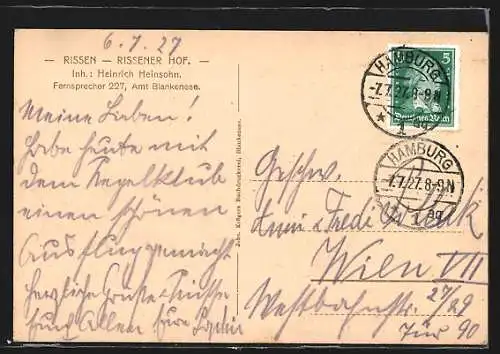 6.7.27
— RISSEN — RISSENER HOF. —
Inh.: Heinrich Heinsohn.
Fernsprecher 227, Amt Blankenese.
Meine Lieben!
Habe heute mit
dem Kegelklub
einen schönen
Ausflug gemacht
herzliche Grüsse
Allen
Joh. Krögers Buchdruckerei, Blankenese.
5
Deutsches Reich
HAMBURG
-7.7.27.8-9N
* 1
HAMBURG
7.7.27.8-9N
1
Geschw.
Wien VII
Westbahnstr. 27/29
Tür 90